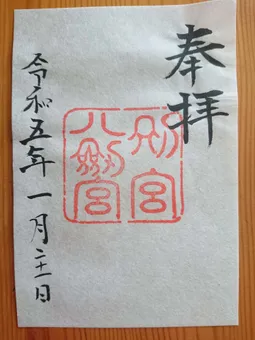 奉拝
別宮
八剣宮
令和五年一月二十一日